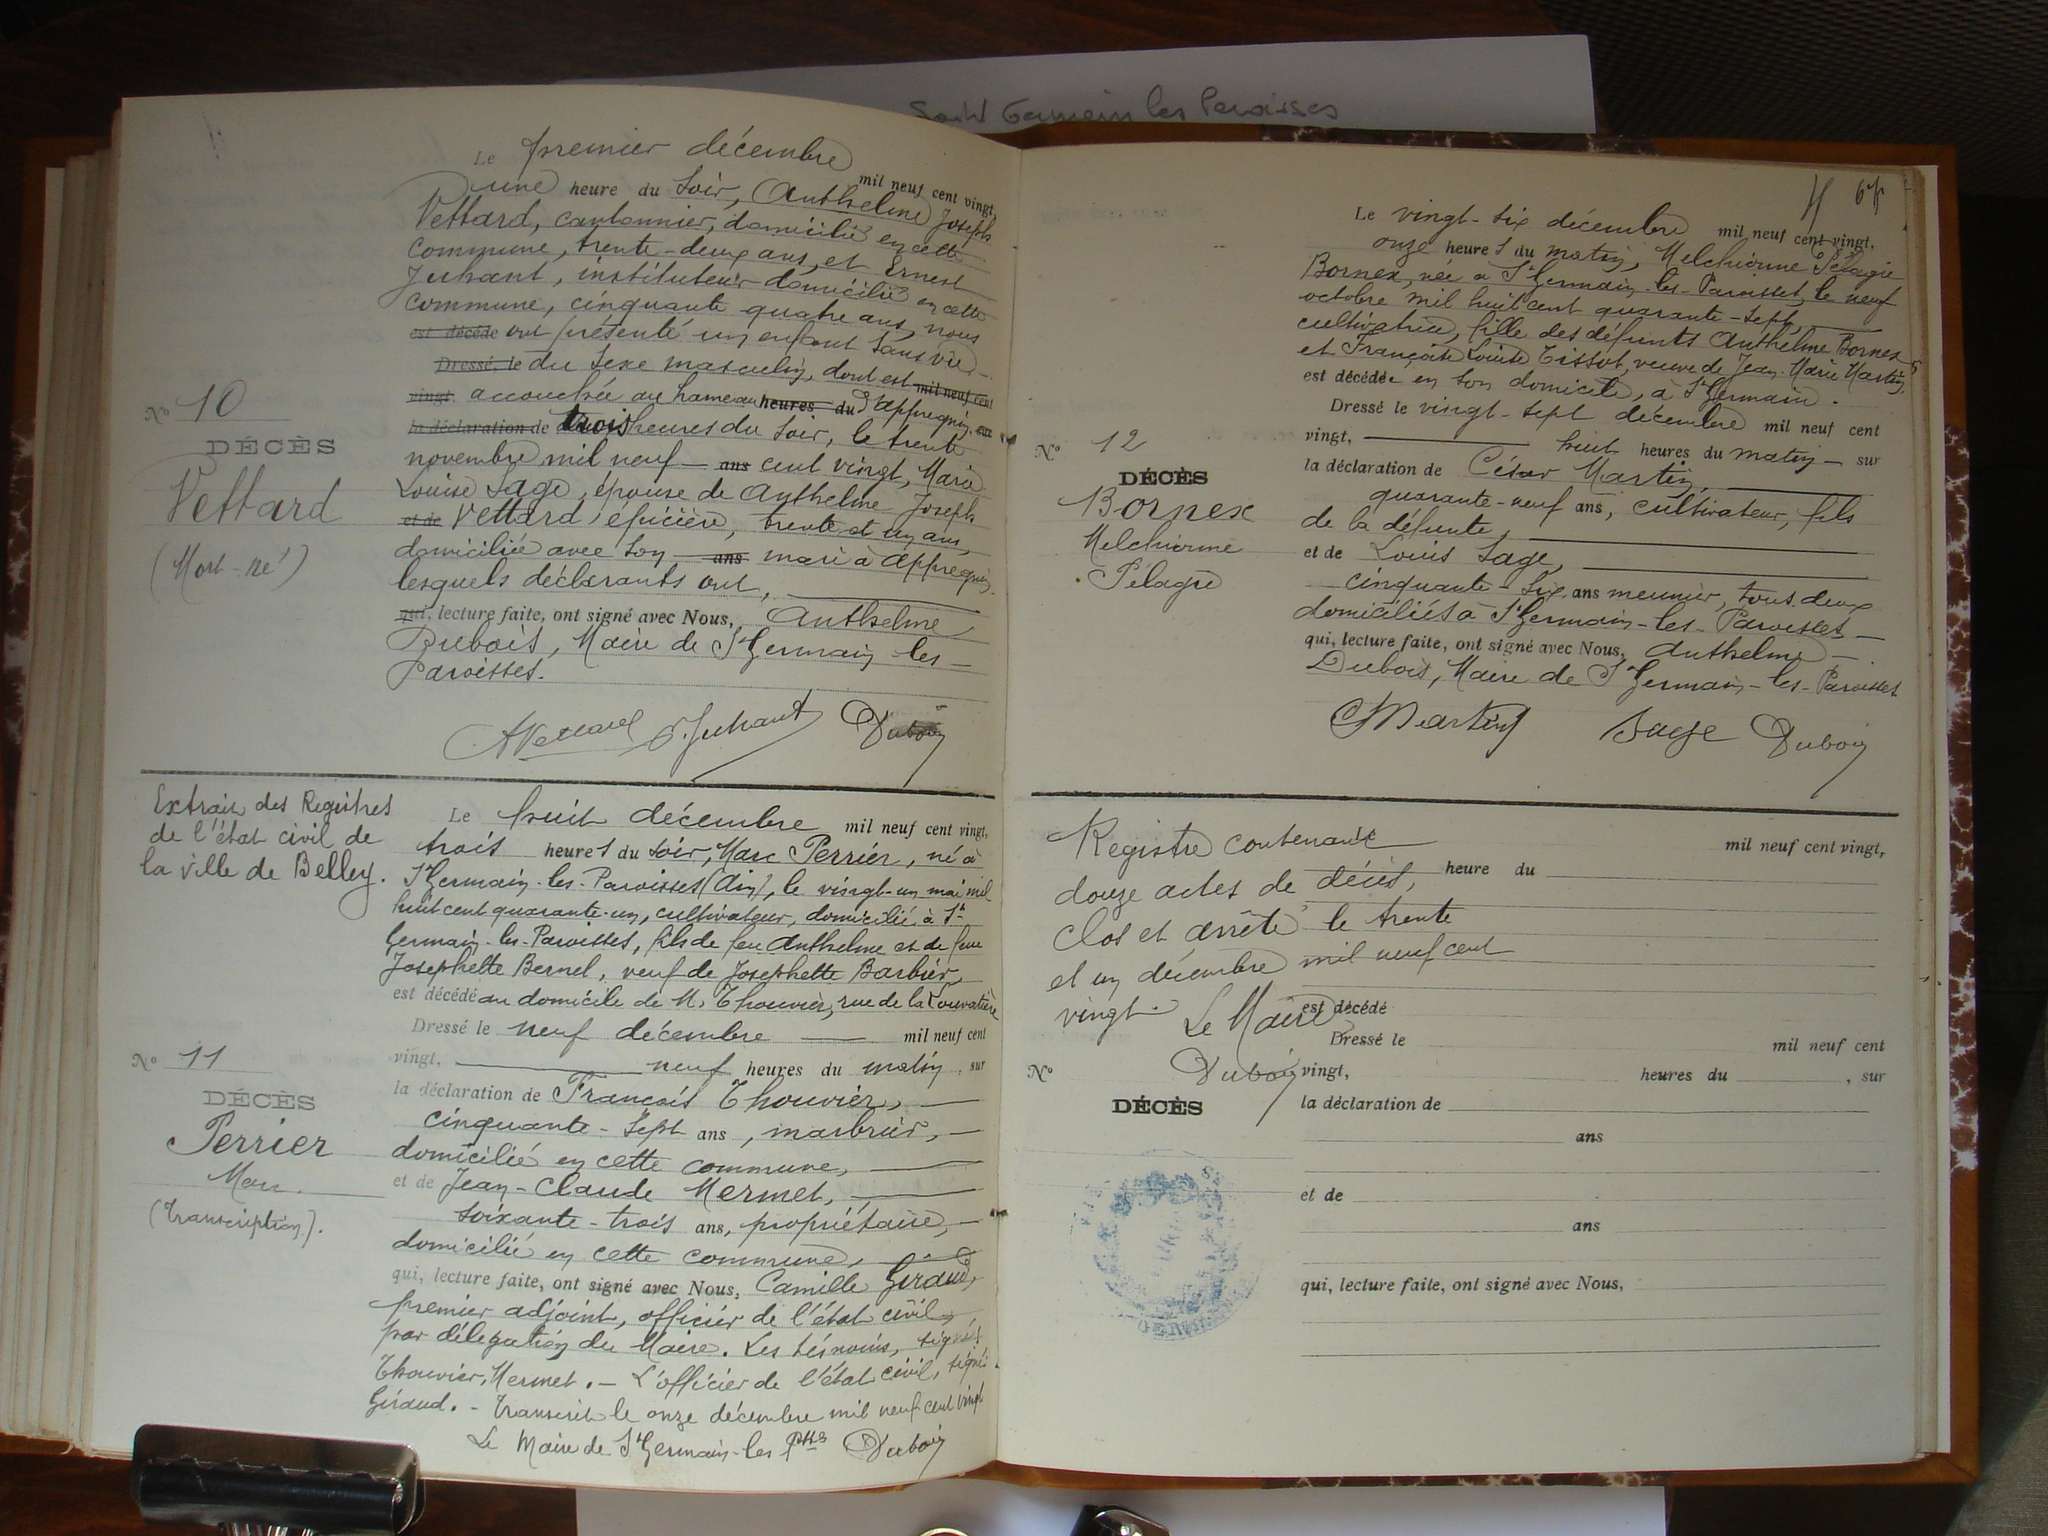 Saint Germain les Paroisses
Le premier décembre mil neuf cent vingt,
une heure du soir, Anthelme Joseph
Vettard, cantonnier, domicilié en cette
commune, trente-deux ans, et Ernest
Juhant, instituteur domicilié en cette
commune, cinquante quatre ans, nous
est décédé ont présenté un enfant sans vie
Dressé, le du sexe masculin, dont est mil neuf cent
vingt, accouchée au hameau heures du d'appregnin,
la déclaration de trois heures du soir, le trente
novembre mil neuf - ans cent vingt, Marie
Louise Sage, épouse de Anthelme Joseph
et de Vettard, épicière, trente et un ans,
domiciliée avec son ans mari à appregnin
lesquels déclarants ont,
qui, lecture faite, ont signé avec Nous, Anthelme
Dubois, Maire de St Germain-les-
Paroisses.
AVettard E. Juhant Dubois
No 10
DÉCÈS
Vettard
(Mort-né)
Extrait des Registres
de l'état civil de
la ville de Belley.
Le huit décembre mil neuf cent vingt,
trois heures du soir, Marc Perrier, né à
St Germain-les-Paroisses (Ain), le vingt-un mai mil
huit cent quarante-un, cultivateur, domicilié à St
Germain-les-Paroisses, fils de feu Anthelme et de feue
Josephette Bernel, veuf de Josephette Barbier,
est décédé au domicile de M. Thouvier, rue de la
Dressé le neuf décembre mil neuf cent
vingt, neuf heures du matin, sur
la déclaration de François Thouvier,
cinquante-sept ans, marbrier,
domicilié en cette commune,
et de Jean-Claude Mermet,
soixante-trois ans, propriétaire,
domicilié en cette commune,
qui, lecture faite, ont signé avec Nous, Camille Giraud,
premier adjoint, officier de l'état civil,
par délégation du Maire. Les témoins, signé:
Thouvier, Mermet. - L'officier de l'état civil, signé:
Giraud. - Transcrit le onze décembre mil neuf cent vingt
Le Maire de St Germain-les Psses Dubois
No 11
DÉCÈS
Perrier
Marc
(Transcription).
Le vingt-six décembre mil neuf cent vingt,
onze heures du matin, Melchiorine Pélagie
Bornex, née à St Germain-les-Paroisses, le neuf
octobre mil huit cent quarante-sept,
cultivatrice, fille des défunts Anthelme Bornex
et Françoise Louise Tissot, veuve de Jean-Marie Martin,
est décédée en son domicile, à St Germain.
Dressé le vingt-sept décembre mil neuf cent
vingt, huit heures du matin sur
la déclaration de César Martin,
quarante-neuf ans, cultivateur, fils
de la défunte,
et de Louis Sage,
cinquante-six ans meunier, tous deux
domiciliés à St Germain-les-Paroisses
qui, lecture faite, ont signé avec Nous, Anthelme
Dubois, Maire de St Germain-les-Paroisses
CMartin Sage Dubois
No 12
DÉCÈS
Bornex
Melchiorine
Pélagie
Registre contenant mil neuf cent vingt,
douze actes de décès, heure du
clos et arrêté le trente
et un décembre mil neuf cent
vingt. Le Maire est décédé
Dressé le mil neuf cent
Dubois vingt, heures du , sur
No
DÉCÈS
la déclaration de
ans
et de
ans
qui, lecture faite, ont signé avec Nous,